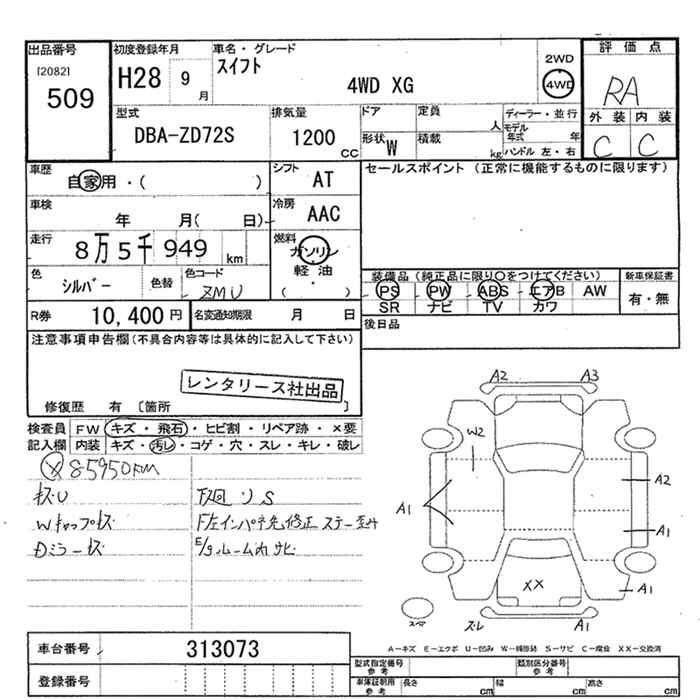 出品番号
[2082]
509
初度登録年月
H28 9月
車名・グレード
スイフト
4WD XG
2WD
4WD
評価点
RA
外装 内装
C C
型式
DBA-ZD72S
排気量
1200 CC
ドア
定員
人
形状 W
積載
kg
ディーラー・並行
モデル年式 年
ハンドル 左・右
車歴
自家用・( )
シフト
AT
セールスポイント (正常に機能するものに限ります)
車検
年 月( 日)
冷房
AAC
走行
8万5千949 km
燃料
ガソリン
軽油
( ・ )
色
シルバー
色替
色コード
ZMU
装備品 (純正品に限り○をつけてください)
PS PW ABS エアB AW
SR ナビ TV カワ
新車保証書
有・無
R券 10,400円
名変通知期限 月 日
後日品
注意事項申告欄(不具合内容等は具体的に記入して下さい)
レンタリース社出品
修復歴 有 〔箇所 〕
検査員記入欄
FW キズ・飛石・ヒビ割・リペア跡・×要
内装 キズ・汚レ・コゲ・穴・スレ・キレ・破レ
85950KM
キズU
下廻りS
Wキャップキズ
Dミラーキズ
E/gルーム内サビ
A2 A3
W2
A1
A2
A1
A1
XX
スペア
スレ A1
A-キズ E-エクボ U-凹み W-補修跡 S-サビ C-腐食 XX-交換済
車台番号 313073
登録番号
型式指定番号 参考
類別区分番号 参考
車庫証明用 参考 長さ cm 幅 cm 高さ cm